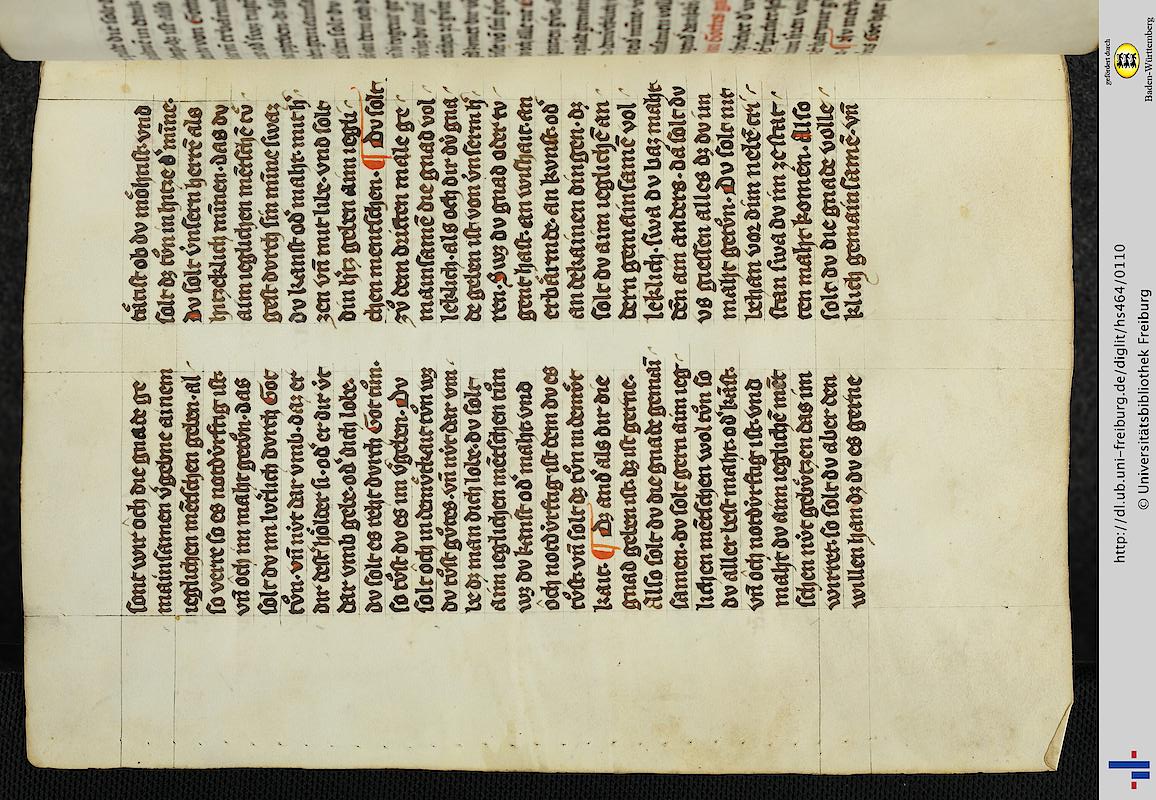 sont wir och die gnade ge
mainsamen v̄gebne ainem
ieglichen mēschen geben · al
so verre so es notdv́rftig ist ·
vn̄ och im maht getvͦn · das
solt dv im lvͤtlich dvrch Got
tvͦn · vn̄ nv́t dar vmb · daz er
dir dest hölder si · od' er dir v́t
dar vmb gebe · od' dich lobe ·
dv solt es reht dvrch Got tuͦn ·
so tvͦst dv es im v̄geben · Dv
solt och in demv́tkait tvͦn wz
dv tvͦst gvͦtes · vn̄ nv́t dar vm
be dz man dich lobe · dv solt
aim ieglichen mētschen tuͦn
wz dv kanst od' maht · vnd
och notdv́rftig ist dem dv es
tvͦst · vn̄ solt dz tvͦn in demvͤt
kait · ¶ Dz and' als dir die
gnad geben ist · dz ist gerne ·
Also solt dv die gnade gemai
samen · dv solt gern aim ieg
lichen mētschen wol tvͦn so
dv aller best maht · od' kāst ·
vn̄ och notdv́rftig ist · vnd
maht dv aim ieglichē mēt
schen nv́t gebv́zen das im
wirret · so solt dv aber den
willen han dz dv es gerne
tätist ob dv möhtist · vnd
solt dz tvͦn in h'tze d' mīne ·
Dv solt v́nsern herrē als
hitzeklich mīnen · das dv
aim ieglichen mētschē tvͤ
gest dvrch sin mīne swaz
dv kanst · od' maht · mit h'
zen vn̄ mit libe · vnd solt
din h'tz geben aim iegli
chen menetschen · ¶ Dv solt
zvͦ dem dristen male ge
mainsamē die gnad vol
leklich · als och dir dv́ gna
de geben ist von v́nserm h'
ren · Swz dv gnad oder tv
gent hast · an wishait · an
erbärmde · an kvnst · od'
an dekainen dingen · dz
solt dv aim ieglichē an
dern gemainsamē vol
leklich · swa dv baz maht
dēn am anders · da solt dv
vs giessen alles dz dv im
maht getvͦn · Dv solt nit
behan vor dim nebē cri
stan swa dv im ze stat
ten maht komēn · Also
solt dv die gnade volle
klich gemainsamē · vn̄
gefördert durch
Baden-Württemberg
http://dl.ub.uni-freiburg.de/diglit/hs464/0110
© Universitätsbibliothek Freiburg